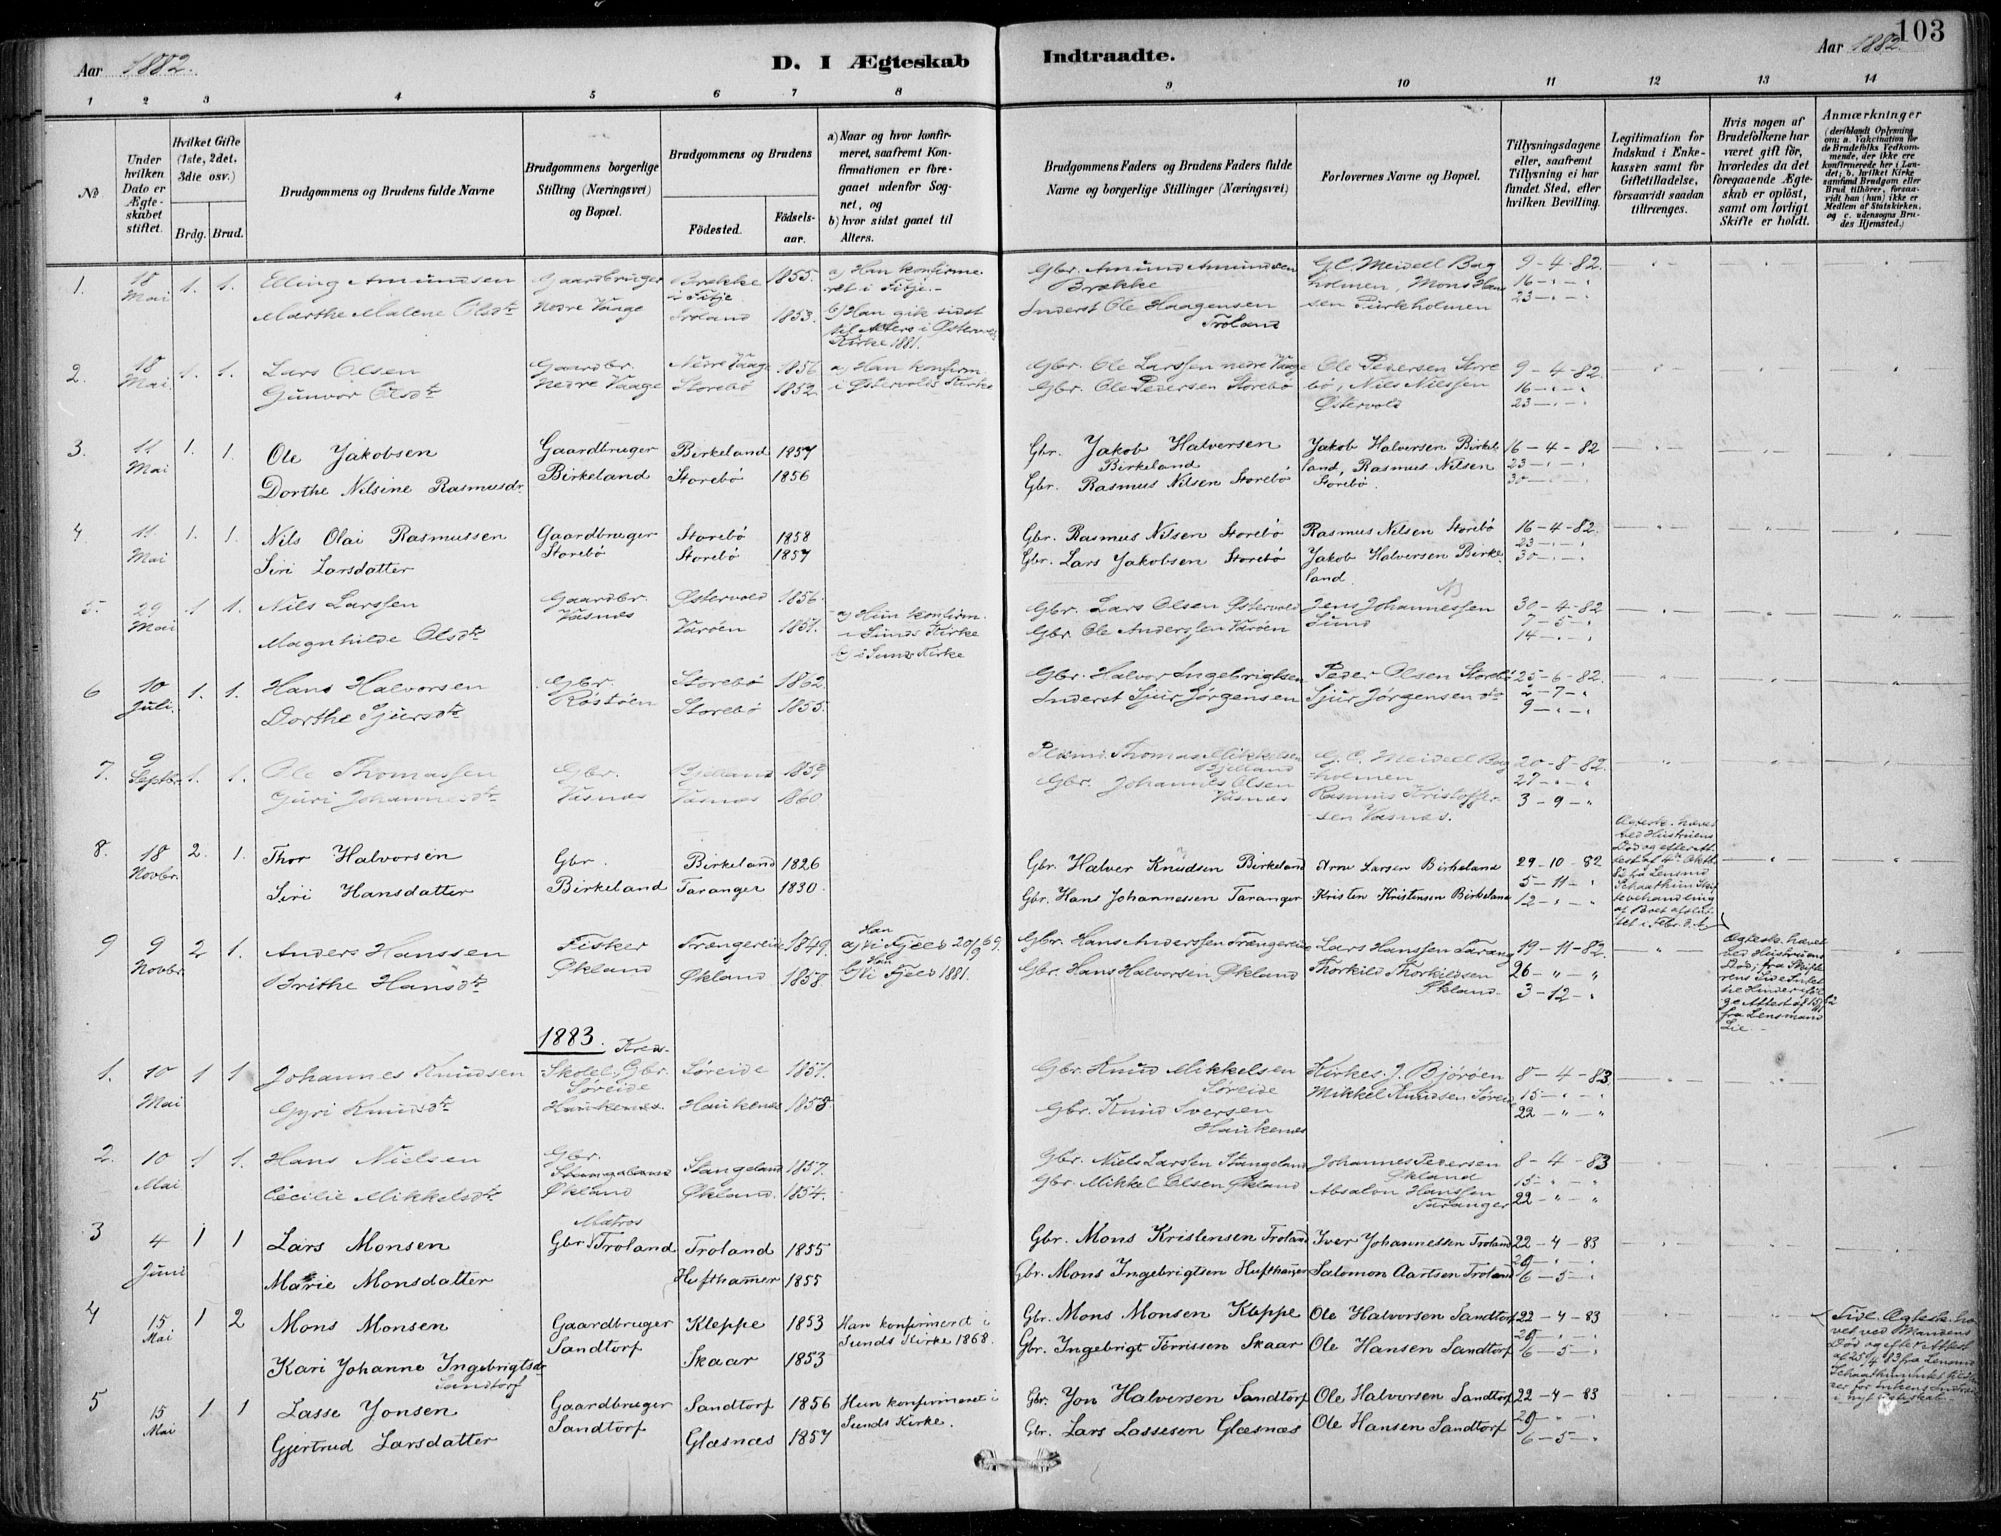 103
Aar 1882.
D. I Ægteskab Indtraadte.
Aar 1882.
1 2 3 4 5 6 7 8 9 10 11 12 13 14
No
Under hvilken Dato er Ægteskabet stiftet.
Hvilket Gifte (1ste, 2det, 3die osv.)
Brdg. Brud.
Brudgommens og Brudens fulde Navne
Brudgommens borgerlige Stilling (Næringsvei) og Bopæl.
Brudgommens og Brudens
Födested.
Födselsaar.
a) Naar og hvor konfirmeret, saafremt Konfirmationen er foregaaet udenfor Sognet, og
b) hvor sidst gaaet til Alters.
Brudgommens Faders og Brudens Faders fulde Navne og borgerlige Stillinger (Næringsvei)
Forlovernes Navne og Bopæl.
Tillysningsdagene eller, saafremt Tillysning ei har fundet Sted, efter hvilken Bevilling.
Legitimation for Indskud i Enkekassen samt for Giftetilladelse, forsaavidt saadan tiltrænges.
Hvis nogen af Brudefolkene har været gift för, hvorledes da det foregaaende Ægteskab er oplöst, samt om lovligt Skifte er holdt.
Anmærkninger
(deriblandt Oplysning om: a. Vakcination for de Brudefolks Vedkommende, der ikke ere konfirmerede her i Landet; b. hvilket Kirkesamfund Brudgom eller Brud tilhörer, forsaavidt han (hun) ikke er Medlem af Statskirken, og c. udensogns Brudes Hjemsted.)
1. 18 Mai 1. 1. Elling Amundsen Gaardbruger Brække i Fitje 1855. a) Han konfirmeret i Fitje. Gbr. Amund Amundsen Brække G. C. Meidell Bagholmen, Mons Hansen Purkholmen 9-4-82.
Marthe Malene Olsdtr Nedre Vaage Troland 1853. b) Han gik sidst til Alters i Østervolds Kirke 1881. Inderst Ole Haagensen Troland 16 - " - " 23 - " - "
2. 18 Mai. 1. 1. Lars Olsen Gaardbr. Nedre Vaage 1856 a) Han konfirm. i Østervolds Kirke Gbr. Ole Larssen nedre Vaage Ole Pedersen Storebö, Nils Nilssen Østervold 9-4-82.
Gunvor Olsdtr Nedre Vaage Storebö 1852 Gbr. Ole Pedersen Storebö 16 - " - " 23 - " - "
3. 11 Mai 1. 1. Ole Jakobsen Gaardbruger Birkeland 1857 Gbr. Jakob Halversen Birkeland Jakob Halversen Birkeland, Rasmus Nilsen Storebö. 16-4-82
Dorthe Nilsine Rasmusdr. Birkeland Storebö 1856 Gbr. Rasmus Nilsen Storebö 23 - " - " 30 - " - "
4 11. Mai 1. 1. Nils Olai Rasmussen Gaardbruger Storebö 1858 Gbr. Rasmus Nilsen Storebö Rasmus Nilsen Storebö 16-4-82.
Siri Larsdatter Storebö Storebö 1857 Gbr. Lars Jakobsen Storebö Jakob Halversen Birkeland. 23 - " - " 30 - " - "
5. 29 Mai 1 1. Nils Larssen Gaardbr. Østervold 1856. a) Hun konfirm. i Sunds Kirke Gbr. Lars Olsen Østervold Jens Johannessen Sund 30-4-82
Magnhilde Olsdtr Vasnes Varöen 1851. b) i Sunds Kirke Gbr. Ole Anderssen Varöen 7-5-" 14 - " - "
6 10 Juli. 1. 1. Hans Halvorsen Gbr. Storebö 1862. Gbr. Halvor Ingebrigtsen Peder Olsen Storebö 25-6-82.
Dorthe Sjursdtr Röstöen Storebö 1855. Inderst Sjur Jörgensen Sjur Jörgensen do 2-7-" 9 - " - "
7. 9 Septbr. 1. 1. Ole Thomassen Gbr. Bjelland 1859 Thomas Mikkelsen Bjelland G. C. Meidell Bagholmen 20-8-82.
Guri Johannesdtr Vasnes Vasnes 1860 Gbr. Johannes Olsen Vasnes Rasmus Kristoffersen Vasnes. 27 - " - " 3-9-"
8. 18 Novbr. 2. 1. Thor Halvorsen Gbr. Birkeland 1826 Gbr. Halver Knudsen Birkeland Arne Larsen Birkeland 29-10-82
Siri Hansdatter Birkeland Taranger 1830. Gbr. Hans Johannessen Taranger Kristen Kristensen Birkeland 5-11-" 12 - " - "
Ægtesk. hævet ved Hustruens Död og efter Attest af 4de Oktb. 82 fra Lensmd
9 9 Novbr. 2 1. Anders Hanssen Fisker Trængereide 1849. a) Han i Fjeld 20/9 69. Gbr. Hans Anderssen Trængereide Lars Hanssen Tarang 19-11-82.
Brithe Hansdtr Økland Økland 1858. b) Han i Fjeld 1881. Gbr. Hans Halvorsen Økland Thorkild Thorkildsen Økland. 26 - " - " 3-12-"
Ægtesk. hævet ved Hustruens Död; fra Lensmand Lie.
1883.
1. 10 Mai 1 1 Johannes Knudsen Kreds-Skolel, Gbr. Söreide Söreide 1851. Gbr. Knud Mikkelsen Söreide Kirkes. J. Björöen 8-4-83.
Gyri Knudsdtr Haukenes. Haukenes 1858. Gbr. Knud Iversen Haukenes Mikkel Knudsen Söreide 15 - " - " 22 - " - "
2. 10 Mai 1 1. Hans Nielsen Gbr. Stangeland Stangeland 1857. Gbr. Niels Larssen Stangeland Johannes Pedersen Økland 8-4-83
Cecilie Mikkelsdtr Økland Økland. 1854. Gbr. Mikkel Olsen Økland Absalon Hanssen Taranger 15 - " - " 22 - " - "
3 4 Juni 1 1 Lars Monsen Matros Gbr. Troland Troland 1855 Gbr. Mons Kristensen Troland Iver Johannessen Troland 22-4-83
Marie Monsdatter Hufthamer 1855 Gbr. Mons Ingebrigtsen Hufthamer Salomon Aartsen Troland 29 - " - " 6-5-"
4 15 Mai 1 2 Mons Monsen Gaardbruger Kleppe 1853 Han konfirmeret i Sunds Kirke 1868. Gbr. Mons Monsen Kleppe Ole Halvorsen Sandtorf 22-4-83
Kari Johanne Ingebrigtsdr Sandtorf Sandtorf Skaar 1853 Gbr. Ingebrigt Törrissen Skaar Ole Hansen Sandtorf 29 - " - " 6-5-"
5 15 Mai 1 1 Lasse Jonsen Gaardbruger Sandtorf 1856 Hun konfirmeret i Sunds Kirke. Gbr. Jon Halversen Sandtorf Ole Halvorsen Sandtorf 22-4-83
Gjertrud Larsdatter Sandtorf Glæsnæs 1857 Gbr. Lars Lassesen Glæsnæs Ole Hansen Sandtorf 29 - " - " 6-5-"